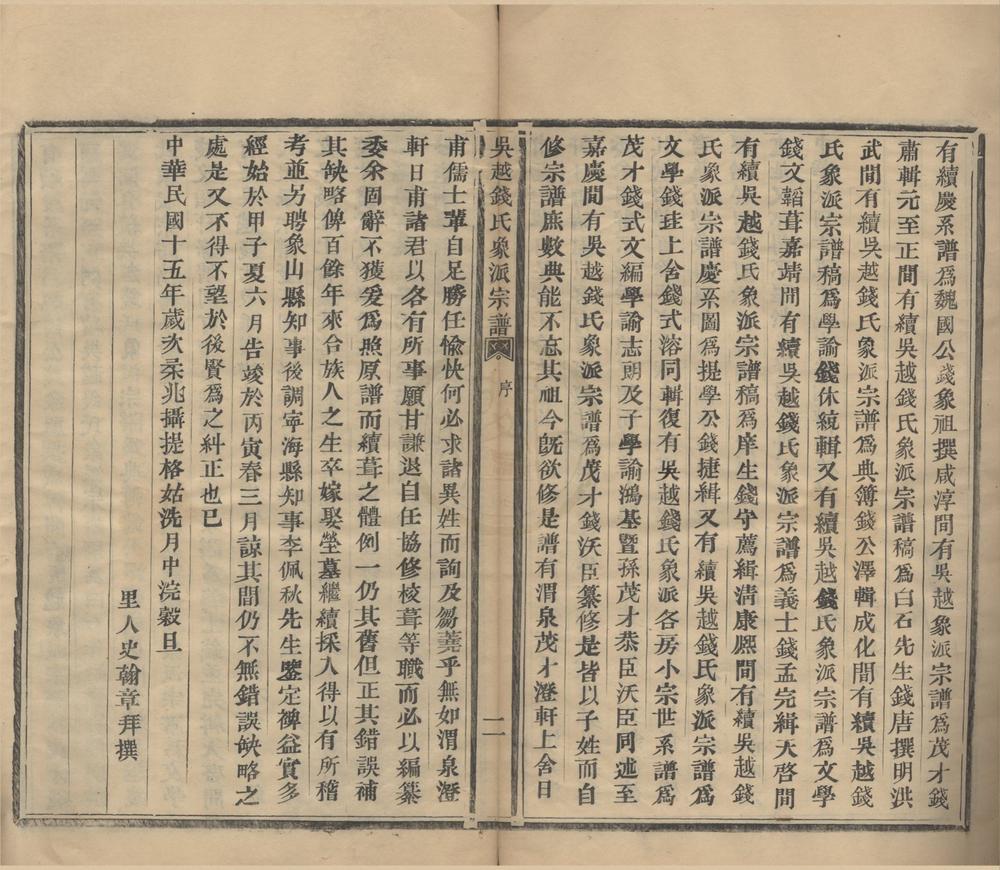 有續慶系譜爲魏國公錢象祖撰咸淳間有吳越象派宗譜爲茂才錢
肅輯元至正間有續吳越錢氏象派宗譜稿爲白石先生錢唐撰明洪
武間有續吳越錢氏象派宗譜爲典簿錢公澤輯成化間有續吳越錢
氏象派宗譜稿爲學諭錢休統輯又有續吳越錢氏象派宗譜爲文學
錢文韜葺嘉靖間有續吳越錢氏象派宗譜爲義士錢孟完緝天啓間
有續吳越錢氏象派宗譜稿爲庠生錢守薦緝清康熙間有續吳越錢
氏象派宗譜慶系圖爲提學公錢捷緝又有續吳越錢氏象派宗譜爲
文學錢珪上舍錢式溶同輯復有吳越錢氏象派各房小宗世系譜爲
茂才錢式文編學諭志朗及子學諭鴻基暨孫茂才恭臣沃臣同述至
嘉慶間有吳越錢氏象派宗譜爲茂才錢沃臣纂修是皆以子姓而自
修宗譜庶數典能不忘其祖今旣欲修是譜有渭泉茂才澄軒上舍日
吳越錢氏象派宗譜 序 二
甫儒士輩自足勝任愉快何必求諸異姓而詢及芻蕘乎無如渭泉澄
軒日甫諸君以各有所事願甘謙退自任協修校葺等職而必以編纂
委余固辭不獲爰爲照原譜而續葺之體例一仍其舊但正其錯誤補
其缺略俾百餘年來合族人之生卒嫁娶塋墓繼續採入得以有所稽
考並另聘象山縣知事後調寧海縣知事李佩秋先生鑒定裨益實多
經始於甲子夏六月告竣於丙寅春三月諒其間仍不無錯誤缺略之
處是又不得不望於後賢爲之糾正也已
中華民國十五年歲次柔兆攝提格姑洗月中浣穀旦
里人史翰章拜撰